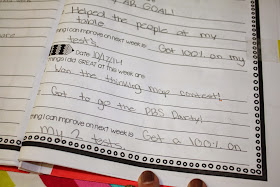 AR GOAL!
Helped the people at my
table
thing I can improve on next week is Get 100% on my
tests.
Date: 10/17/14
things I did GREAT at this week are
Won the thinking map contest!
Got to go the PBS Party!
thing I can improve on next week is Get a 100% on
my 2 tests.